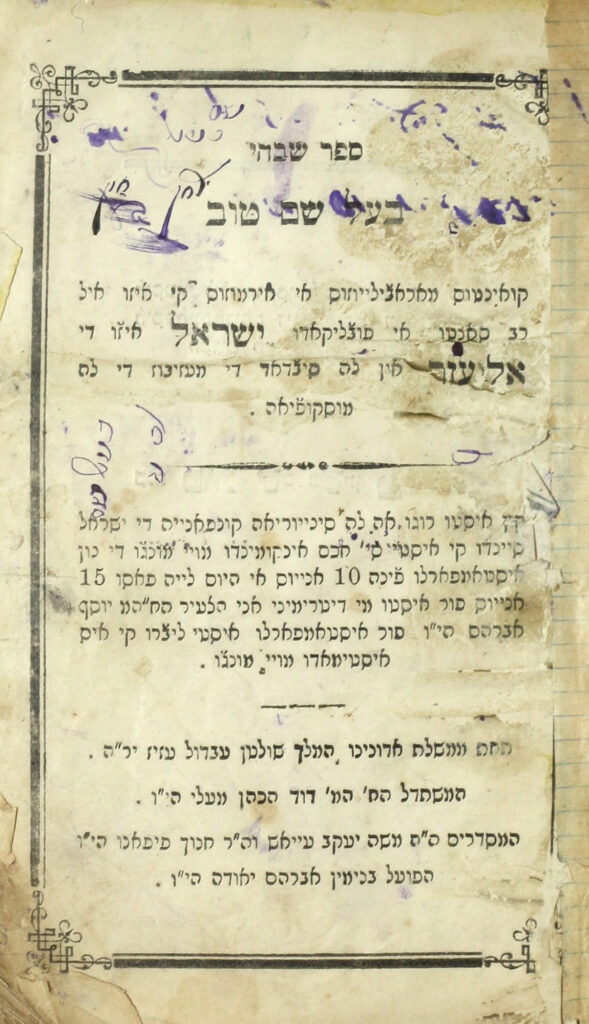 ספר שבחי
בעל שם טוב
קואינטוס מאראב׳ילייוזוס אי אירמוזוס קי איזו איל
רב סאנטו אי פובליקאדו ישראל איזו די
אליעזר אין לה סיב׳דאד די מעזיבוז די לה
מוסקוב׳יאה .
איסטו רוגו אה לה סינייוריאה קונפאנייה די ישראל
סיינדו קי איסטי חכם אינקומינדו מויי מונג׳ו די נון
איסטאמפארלו פ׳ינה 10 אנייוס אי היום לייה פאסו 15
אנייוס פור איסטו מי דיטירמיני אני הצעיר הח״המ יוסף
אברהם הי״ו פור איסטאמפארלו איסטי ליב׳רו קי איס
איסטימאדו מויי מונג׳ו .
תחת ממשלת אדונינו המלך שולטן עבדול עזיז יר״ה .
המשתדל הח׳ המ׳ דוד הכהן מעלי הי״ו .
המסדרים ה״ה משה יעקב עייאש וה״ר חנוך פיפאנו הי״ו
הפועל בנימין אברהם יאודה הי״ו .